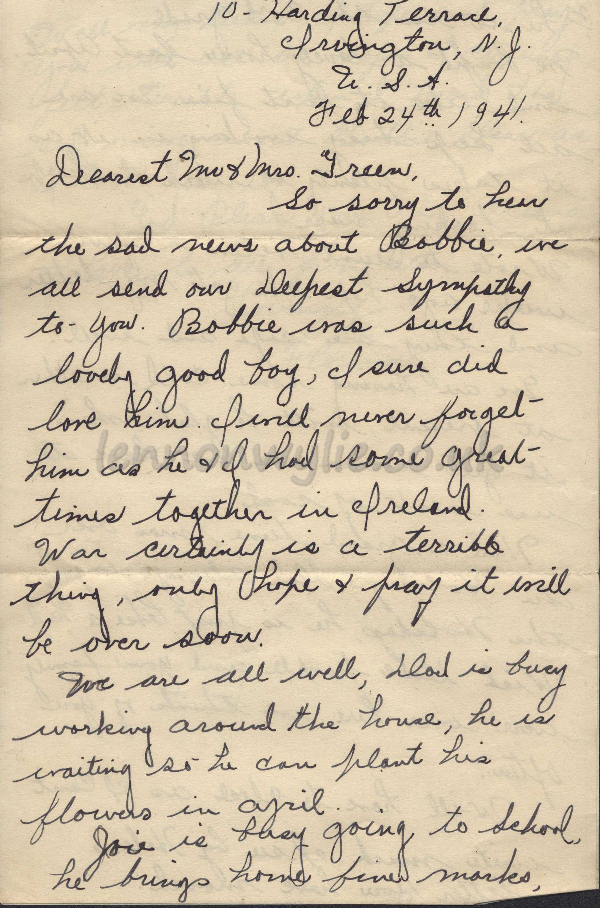 10 - Harding Terrace,
Irvington, N.J.
U.S.A.
Feb 24th, 1941.
Dearest Mr & Mrs. Green,
So sorry to hear
the sad news about Bobbie, we
all send our Deepest Sympathy
to - you. Bobbie was such a
lovely good boy, I sure did
love him. I will never forget
him as he & I had some great
times together in Ireland.
War certainly is a terrible
thing, only hope & pray it will
be over soon.
We are all well, Dad is busy
working around the house, he is
waiting so he can plant his
flowers in april.
Joie is busy going to school,
he brings home fine marks,
lennonwylie.co.uk